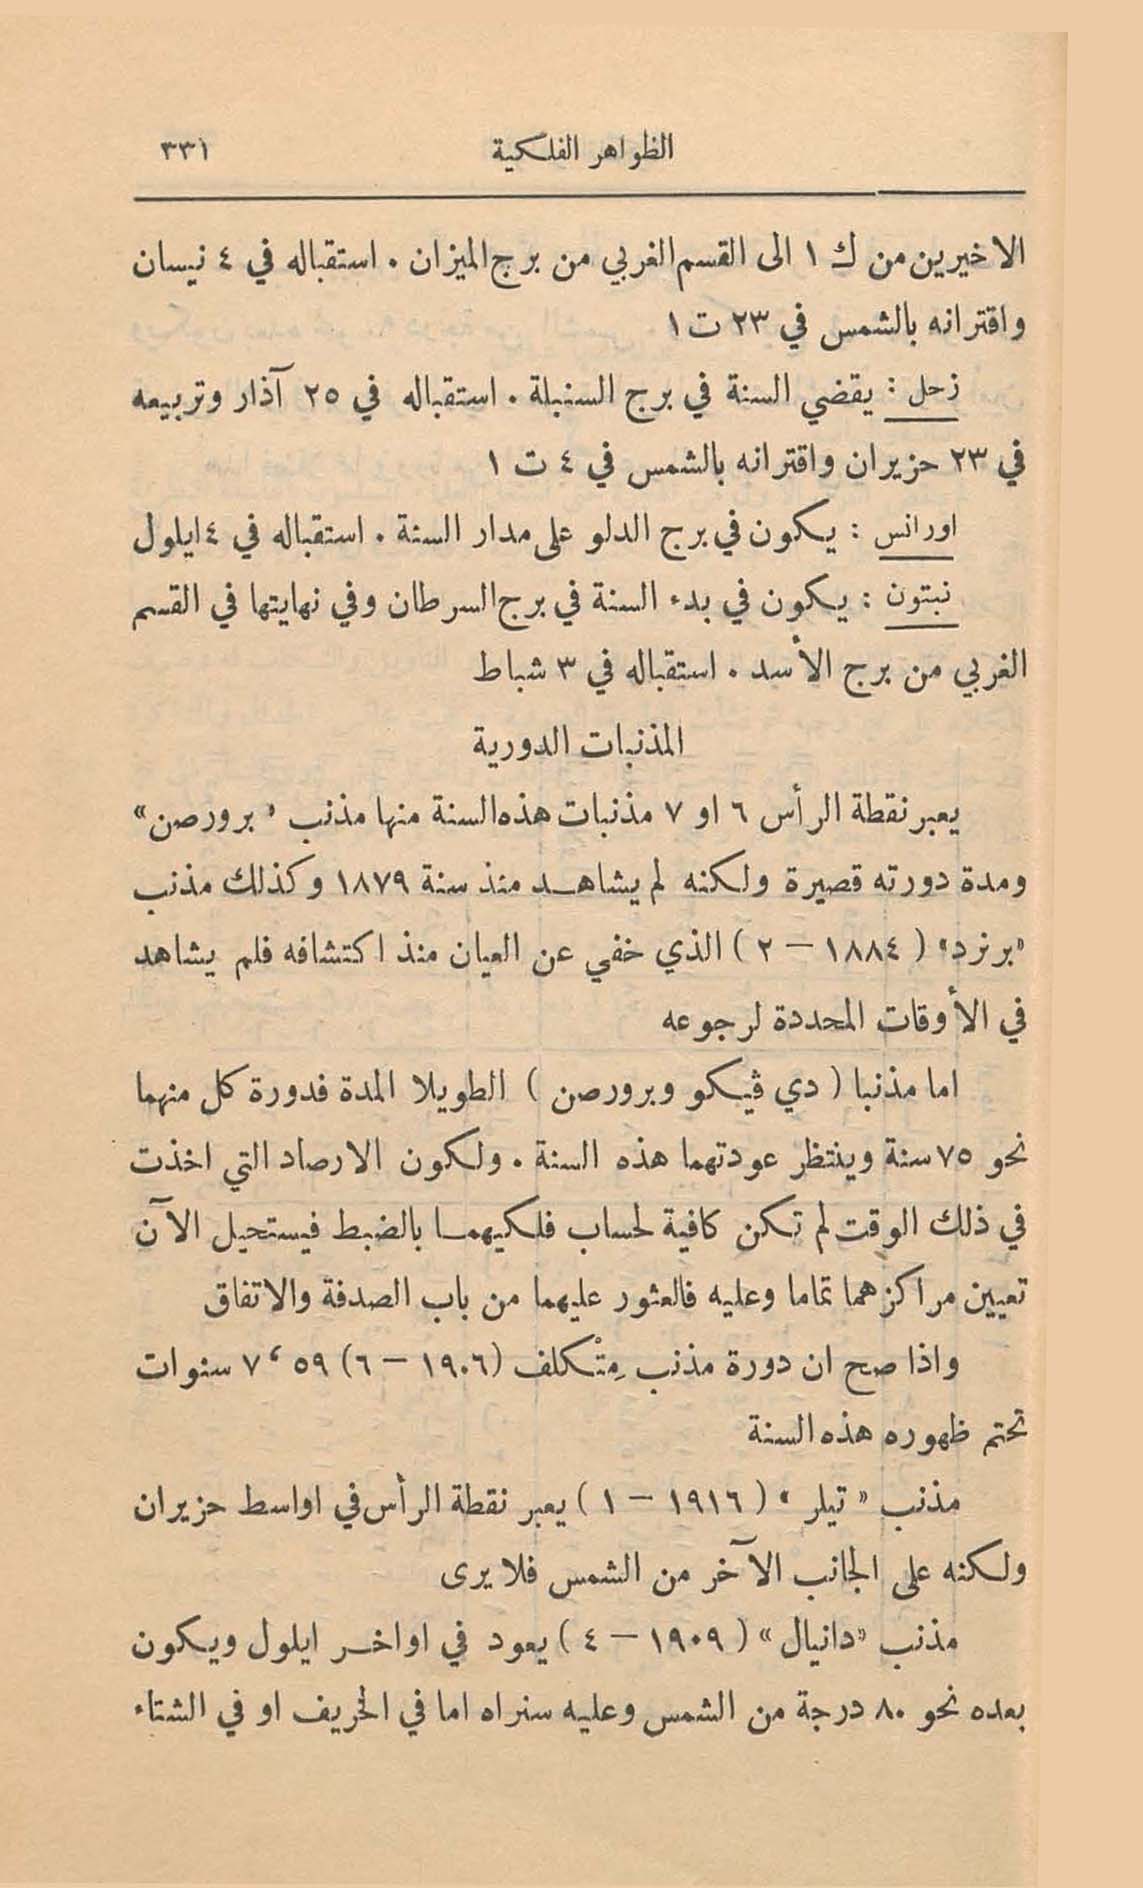 الظواهر الفلكية ٣٣١
الاخيرين من ك ١ الى القسم الغربي من برج الميزان . استقباله في ٤ نيسان
واقترانه بالشمس في ٢٣ ت ١
زحل : يقضي السنة في برج السنبلة . استقباله في ٢٥ آذار وتربيعه
في ٢٣ حزيران واقترانه بالشمس في ٤ ت ١
اورانس : يكون في برج الدلو على مدار السنة . استقباله في ٤ ايلول
نبتون : يكون في بدء السنة في برج السرطان وفي نهايتها في القسم
الغربي من برج الأسد . استقباله في ٣ شباط
المذنبات الدورية
يعبر نقطة الرأس ٦ او ٧ مذنبات هذه السنة منها مذنب « برورصن »
ومدة دورته قصيرة ولكنه لم يشاهد منذ سنة ١٨٧٩ وكذلك مذنب
«برنرد» ( ١٨٨٤ – ٢ ) الذي خفي عن العيان منذ اكتشافه فلم يشاهد
في الأوقات المحددة لرجوعه
اما مذنبا ( دي ڤيكو وبرورصن ) الطويلا المدة فدورة كل منهما
نحو ٧٥ سنة وينتظر عودتهما هذه السنة . ولكون الارصاد التي اخذت
في ذلك الوقت لم تكن كافية لحساب فلكيهما بالضبط فيستحيل الآن
تعيين مراكزهما تماما وعليه فالعثور عليهما من باب الصدفة والاتفاق
واذا صح ان دورة مذنب مِتْكلف (١٩٠٦ – ٦) ٥٩ ، ٧ سنوات
تحتم ظهوره هذه السنة
مذنب « تيلر » ( ١٩١٦ – ١ ) يعبر نقطة الرأس في اواسط حزيران
ولكنه على الجانب الآخر من الشمس فلا يرى
مذنب «دانيال» ( ١٩٠٩ – ٤ ) يعود في اواخر ايلول ويكون
بعده نحو ٨٠ درجة من الشمس وعليه سنراه اما في الخريف او في الشتاء